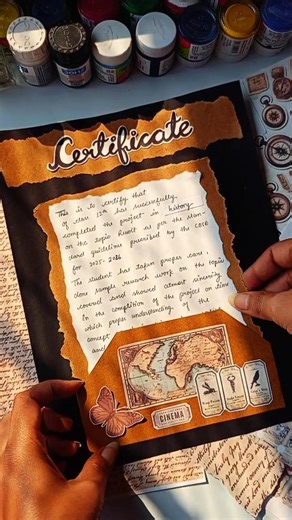 Certificate
This is to certify that
of class 12th has successfully
completed the project in history
on the topic
as per the stan-
dard guidelines prescribed by the CBSE
for 2025-2026
The student has taken proper care,
done sample research work on the topic
covered and showed utmost sincerity
in the completion of the project on time
which proper understanding of the
concept
and
CINEMA